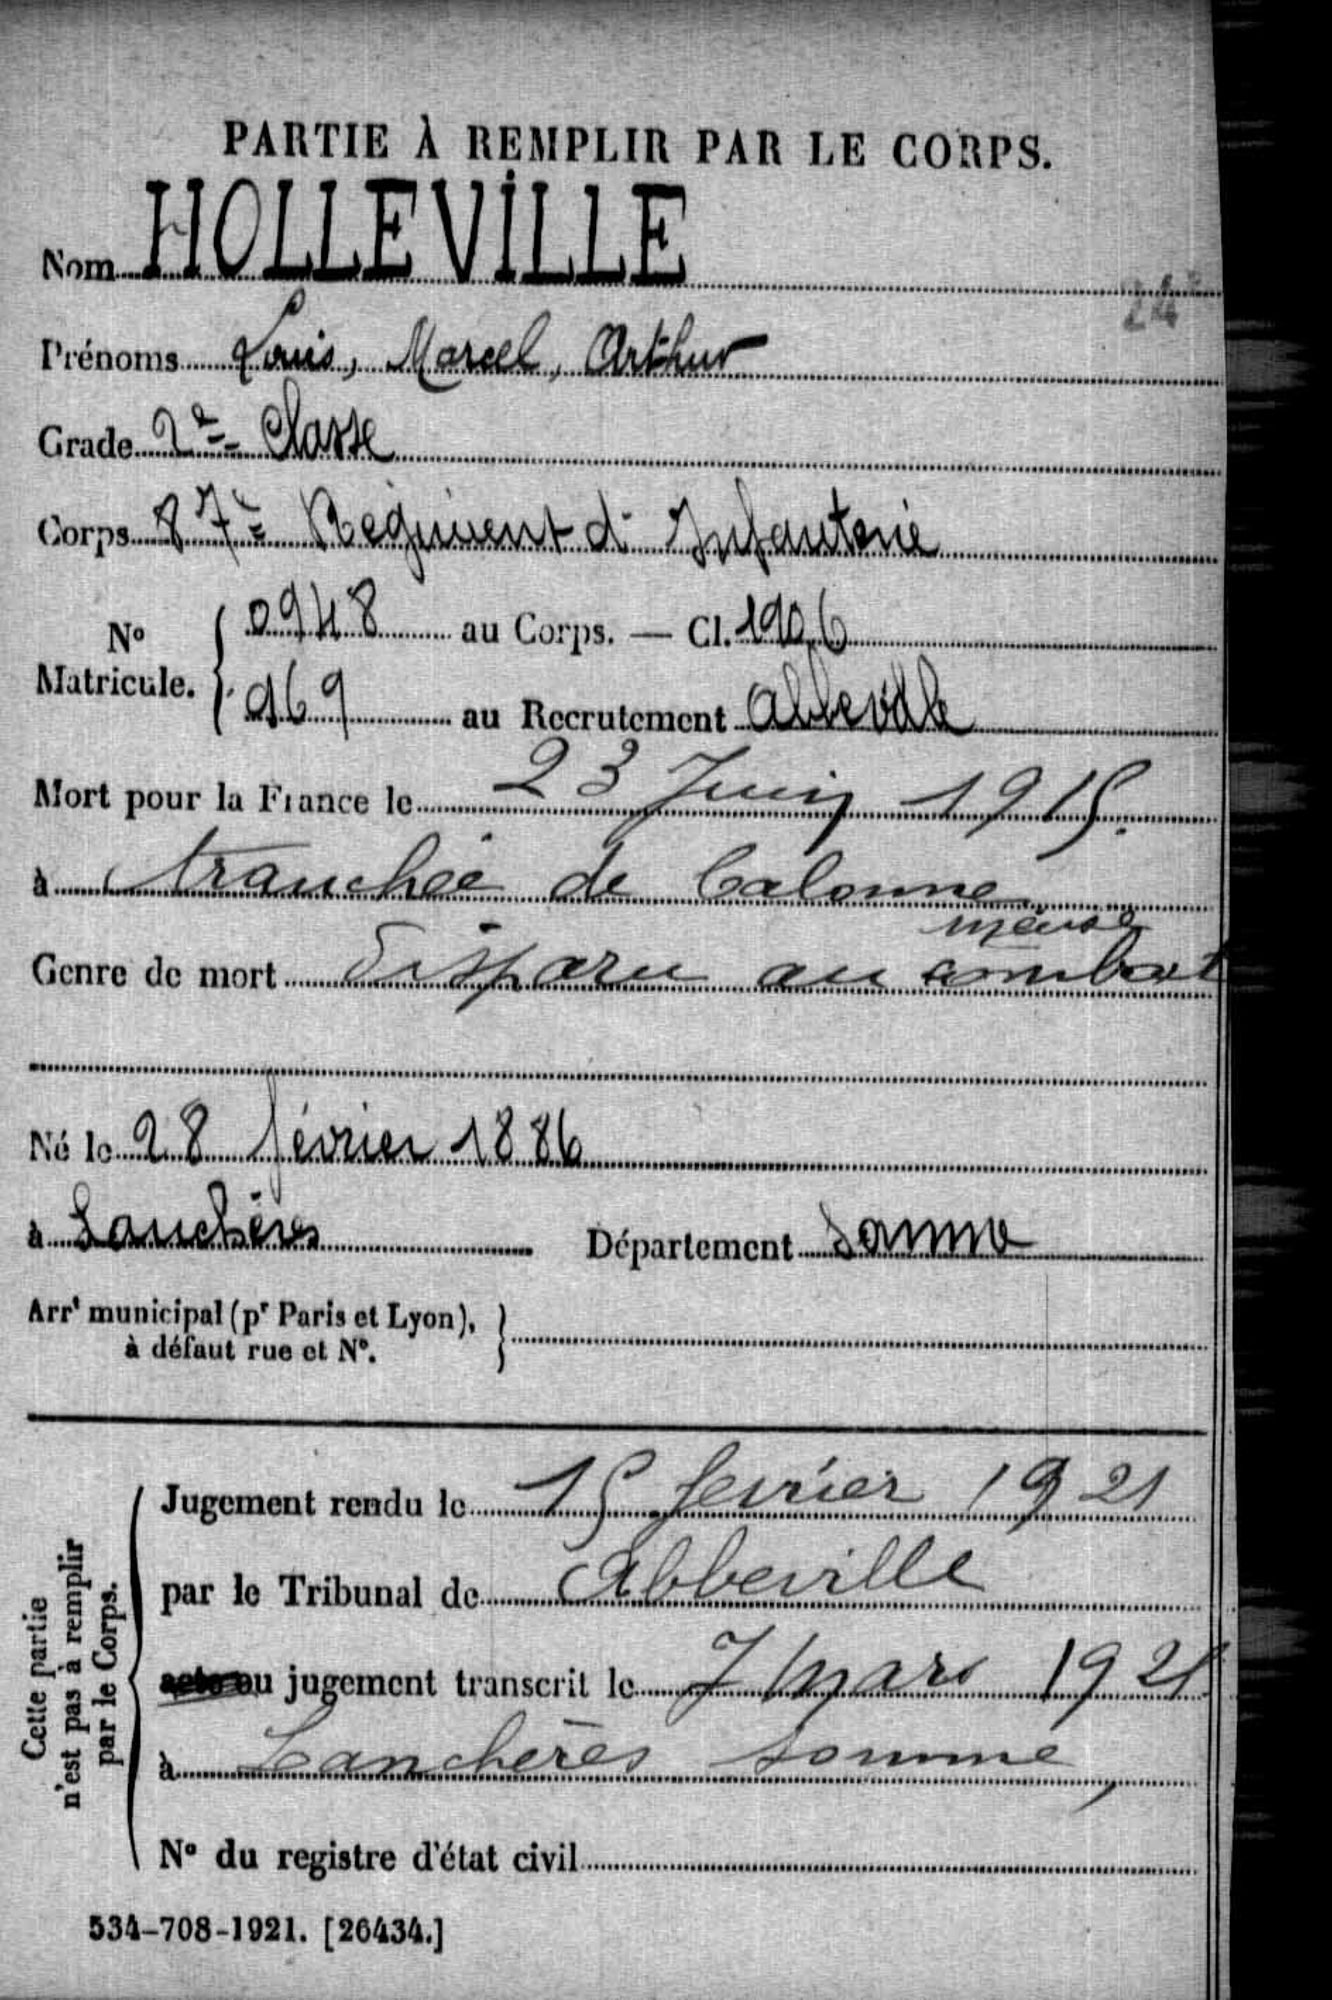 PARTIE À REMPLIR PAR LE CORPS.
Nom HOLLEVILLE
24
Prénoms Louis, Marcel, Arthur
Grade 2e Classe
Corps 87e Régiment d'Infanterie
No Matricule. { 0948 au Corps. — Cl. 1906
969 au Recrutement Abbeville
Mort pour la France le 23 Juin 1915.
à tranchée de Calonne
meuse
Genre de mort Disparu au combat
Né le 28 février 1886
à Lanchères Département Somme
Arrt municipal (pr Paris et Lyon), }
à défaut rue et No.
Cette partie
n'est pas à remplir
par le Corps.
Jugement rendu le 15 fevrier 1921
par le Tribunal de Abbeville
acte ou jugement transcrit le 7 Mars 1921
à Lanchères somme,
No du registre d'état civil
534-708-1921. [26434.]